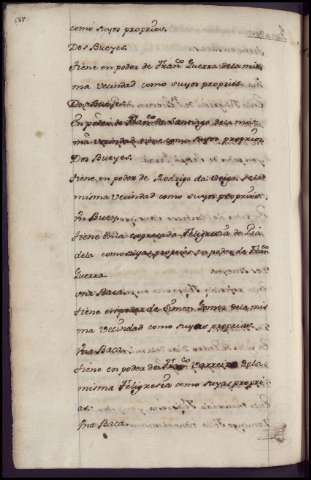 como suyos proprios.
Dos Bueyes.
Tiene en poder de Franco Guerra de la mis
ma vecindad como suyos proprios
Dos Bueyes.
En poder de Franco de Santiago de la mis
ma vecindad tiene como suyos proprios
Dos Bueyes.
Tiene, en poder de Rodrigo da Veiga de la
misma vecindad como suyos proprios.
Un Buey.
Tiene en la expresada feligresia de
dela como suyas proprias en poder de Franco
Guerra.
Una Baca.
Tiene en poder de Simon Gomez de la mis
ma vecindad como suyas proprias
Una Baca.
Tiene en poder de Franco Carreira de la
misma feligresia como suyas propri
as.
Una Baca.